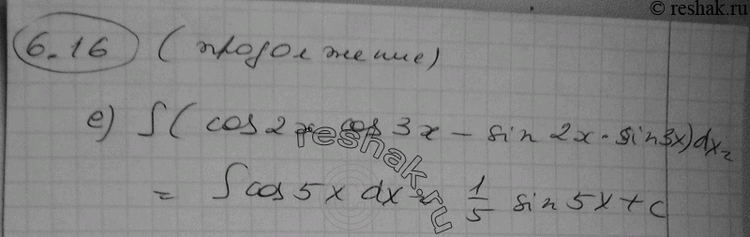 © reshak.ru
6.16 (продолжение)
e) ∫( cos 2x · cos 3x − sin 2x · sin 3x) dx =
= ∫ cos 5x dx = 1/5 sin 5x + c
reshak.ru